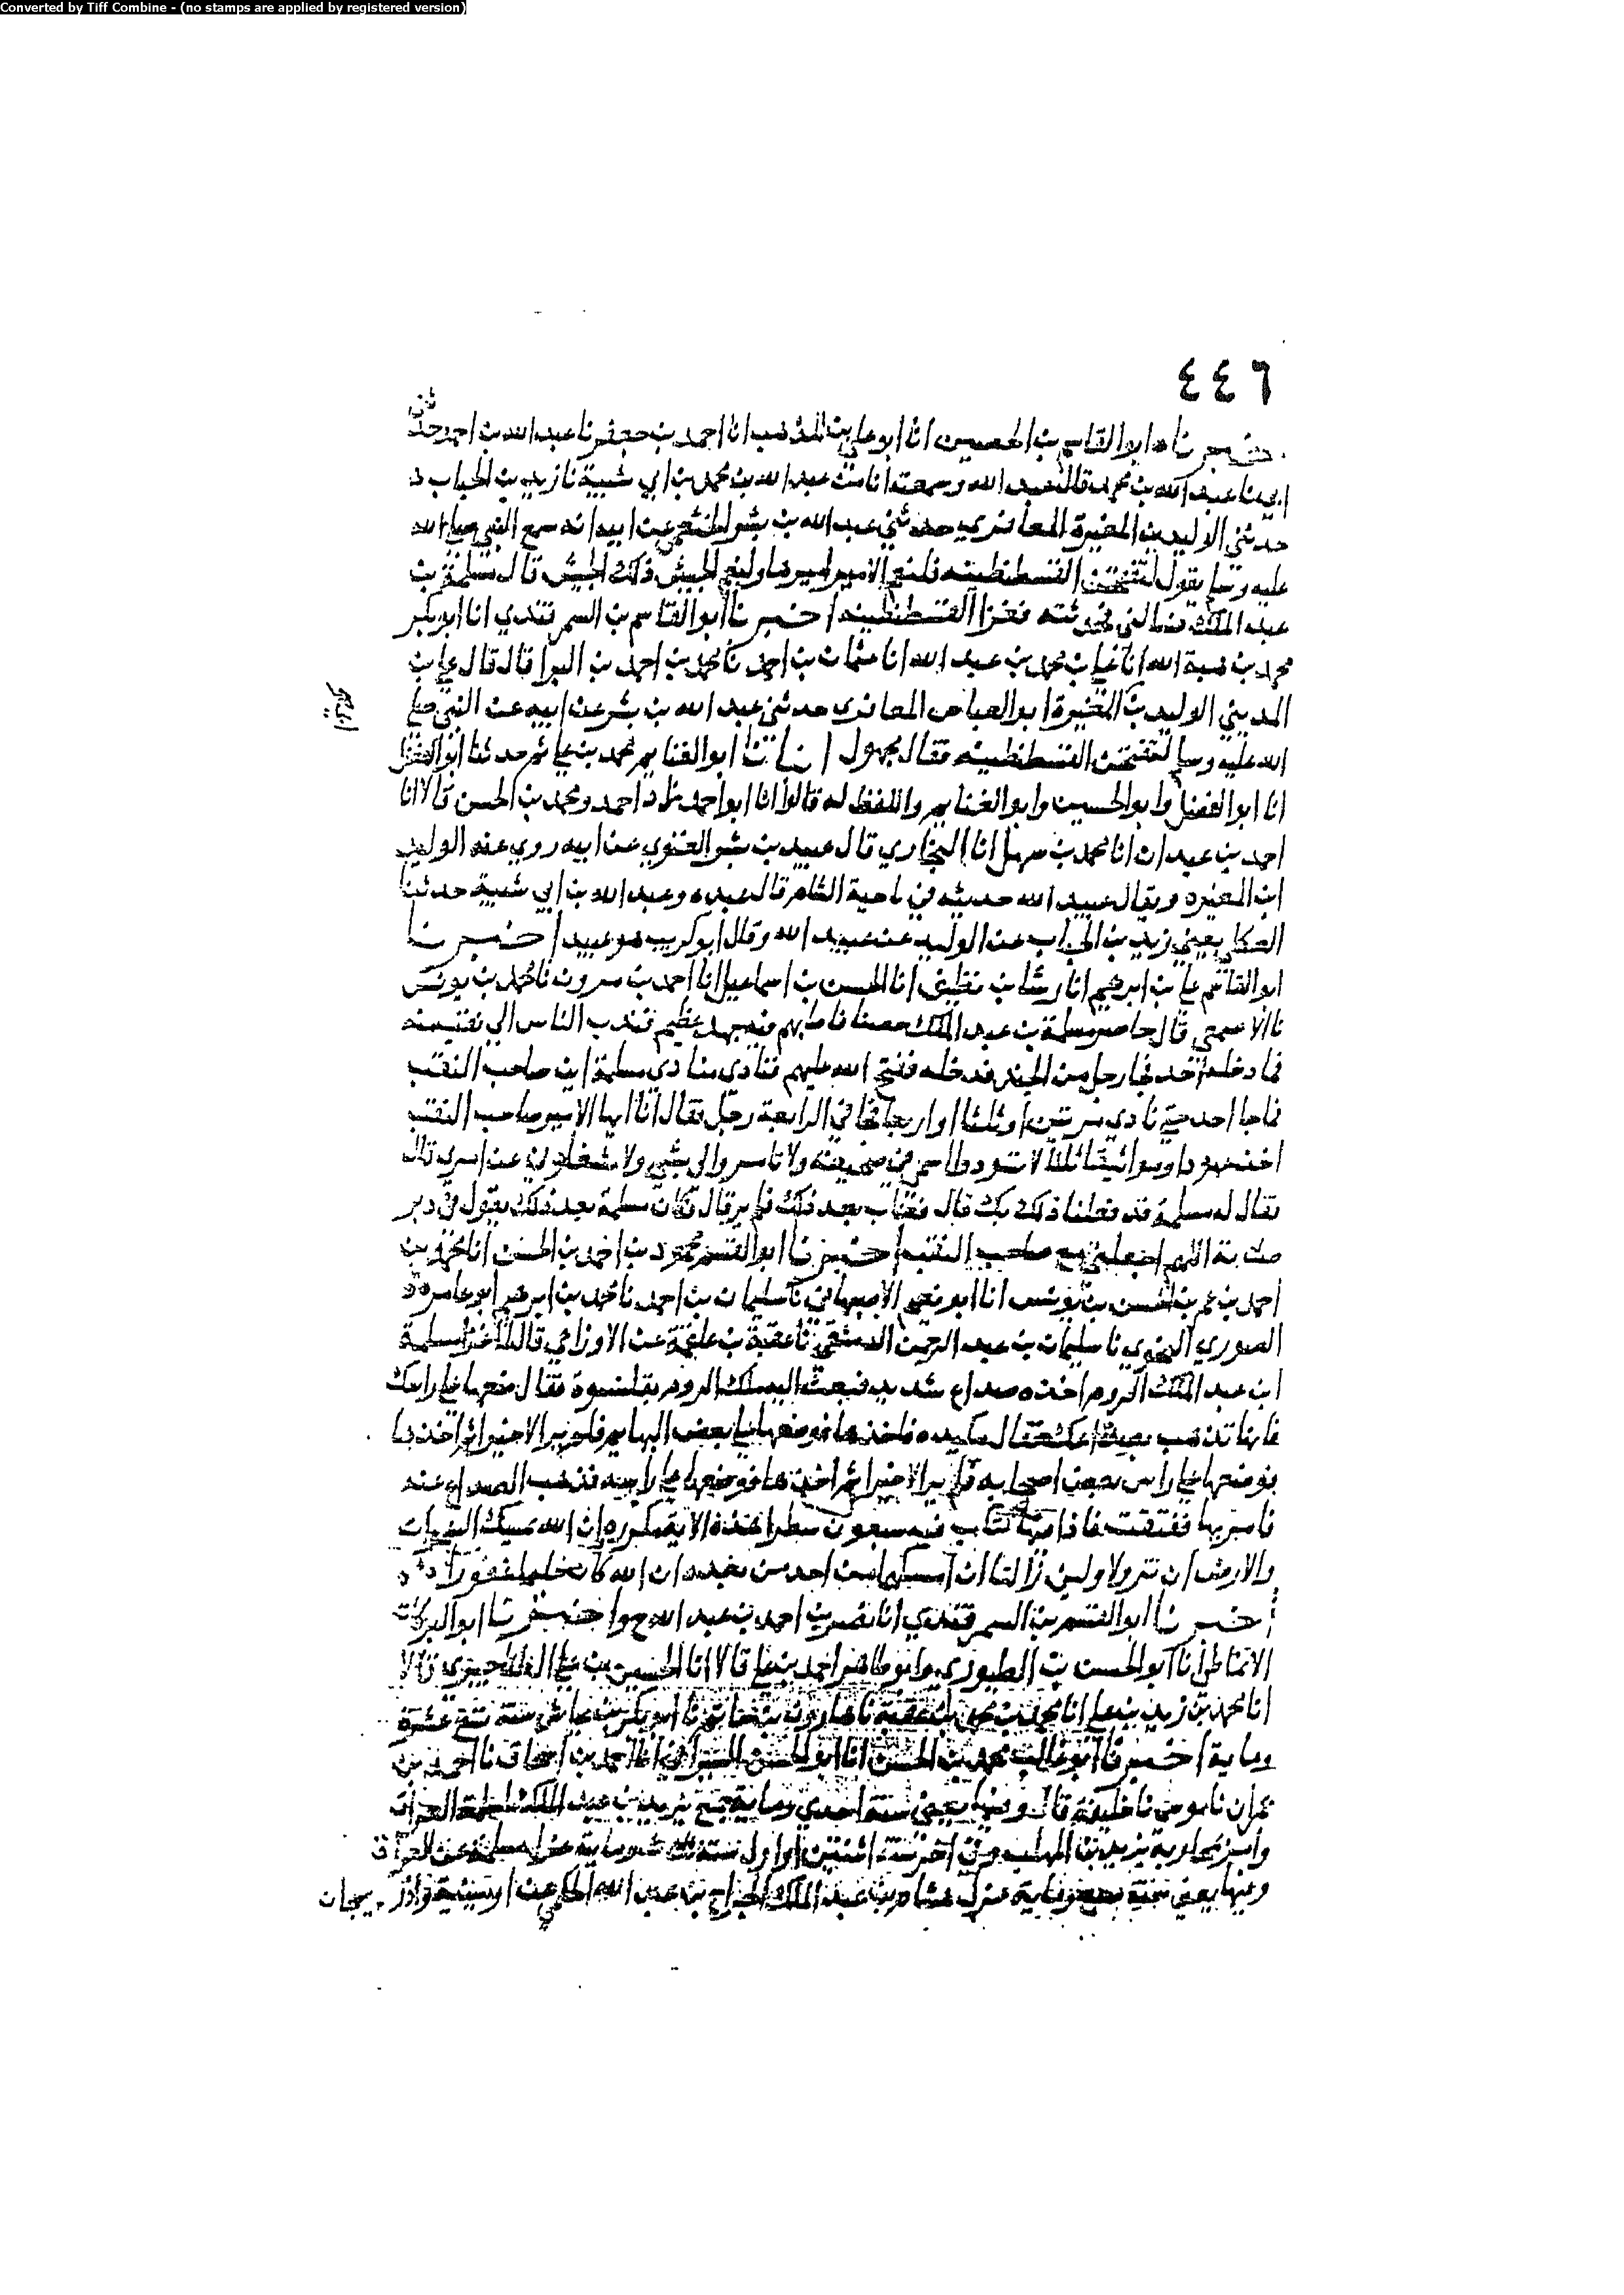 Converted by Tiff Combine - (no stamps are applied by registered version)
٤٤٦
اخبرناه ابو القاسم بن الحصين انا ابو علي بن المذهب انا احمد بن جعفر نا عبد الله بن احمد حدثني
ابي نا عبد الله بن محمد قال عبد الله وسمعته انا من عبد الله بن محمد بن ابي شيبة نا زيد بن الحباب
حدثني الوليد بن المغيرة المعافري حدثني عبد الله بن بشر الخثعمي عن ابيه انه سمع النبي صلى الله
عليه وسلم يقول لتفتحن القسطنطينيه فلنعم الامير اميرها ولنعم الجيش ذلك الجيش قال مسلمة بن
عبد الملك فسالني فحدثته فغزا القسطنطينيه اخبرنا ابو القاسم بن السمرقندي انا ابو بكر
محمد بن هبة الله انا علي بن محمد بن عبد الله انا عثمان بن احمد نا محمد بن احمد بن البرا قال قال علي بن
المديني الوليد بن المغيرة ابو العباس المعافري حدثني عبد الله بن بشر عن ابيه عن النبي صلى
الله عليه وسلم لتفتحن القسطنطينيه فقال مجهول انبانا ابو الغنايم محمد بن علي ثم حدثنا ابو الفضل
انا ابو الفضل وابو الحسين وابو الغنايم واللفظ له قالوا انا ابو احمد زاد احمد ومحمد بن الحسن قالا انا
احمد بن عبدان انا محمد بن سهل انا البخاري قال عبيد بن بشر الغنوي عن ابيه روي عنه الوليد
ابن المغيره ويقال عبيد الله حديثه في ناحية الشام قال عبده وعبد الله بن ابي شيبة حدثنا
العكلي يعني زيد بن الحباب عن الوليد عن عبيد الله وقال ابو كريب هو عبيد اخبرنا
ابو القاسم علي بن ابرهيم انا رشا بن نظيف انا الحسن بن اسماعيل انا احمد بن مروان نا محمد بن يونس
نا الاصمعي قال حاصر مسلمة بن عبد الملك حصنا فاصابهم فيه جهد عظيم فندب الناس الي نقب منه
فما دخله احد فجا رجل من الجند فدخله ففتح الله عليهم فنادى منادي مسلمة اين صاحب النقب
فما جا احد حتى نادي مرتين او ثلثا او اربعا فجا في الرابعة رجل فقال انا ايها الامير صاحب النقب
اخذ عهودا ومواثيقا ثلثا لا تسودوا اسمي في صحيفة ولا تامروا لي بشي ولا تشغلوني عن امري قال
فقال له مسلمة قد فعلنا ذلك بك قال فغاب بعد ذلك فلم ير قال فكان مسلمة بعد ذلك يقول في دبر
صلاته اللهم اجعلني مع صاحب النقب اخبرنا ابو القسم محمود بن احمد بن الحسن انا محمد بن
احمد بن عمر بن الحسن بن يونس انا ابو نعيم الاصبهاني نا سليمان بن احمد نا محمد بن ابرهيم ابو عامر
الصوري النحوي نا سليمان بن عبد الرحمن الدمشقي نا عقبة بن علقمة عن الاوزاعي قال لما غزا مسلمة
ابن عبد الملك الروم اخذه صداع شديد فبعث اليه ملك الروم بقلنسوة فقال ضعها على راسك
فانها تذهب بصداعك فقال مكيده فاخذها فوضعها على بعض البهايم فلم ير الا خيرا ثم اخذها
فوضعها على راس بعض اصحابه فلم ير الا خيرا ثم اخذها فوضعها على راسه فذهب الصداع عنه
فامر بها ففتقت فاذا فيها كتاب فيه سبعون سطرا هذه الاية مكرره ان الله يمسك السموات
والارض ان تزولا ولين زالتا ان امسكهما من احد من بعده ان الله كان حليما غفورا
اخبرنا ابو القسم بن السمرقندي انا نصر بن احمد بن عبد الله ح واخبرنا ابو البركات
الانماطي انا ابو الحسين بن الطيوري وابو طاهر احمد بن علي قالا انا الحسين بن علي الطناجيري قالا
انا محمد بن زيد بن علي انا محمد بن محمد بن عقبة نا هارون بن حاتم نا ابو بكر بن عياش سنة تسع عشرة
وماية اخبرنا ابو غالب محمد بن الحسن انا ابو الحسن السيرافي انا احمد بن اسحاق نا احمد بن
عمران نا موسى نا خليفة قال وفيها يعني سنة احدي وماية جمع يزيد بن عبد الملك لمسلمة العراق
يزيد بن المهلب وفي اخر سنة اثنتين او اول سنة ثلث وماية عزل مسلمة عن العراق
وفيها يعني سنة سبع وماية عزل هشام بن عبد الملك الجراح بن عبد الله الحكمي عن ارمينية واذربيجان